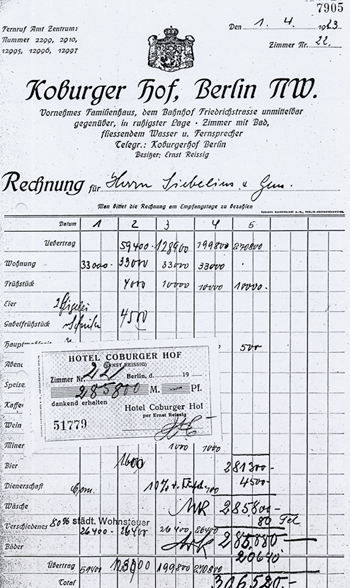 7905
Fernruf Amt Zentrum:
Nummer 2299, 2910,
12995, 12996, 12997
Den 1. 4. 1923
Zimmer Nr. 22
Koburger Hof, Berlin NW.
Vornehmes Familienhaus, dem Bahnhof Friedrichstrasse unmittelbar
gegenüber, in ruhigster Lage · Zimmer mit Bad,
fliessendem Wasser u. Fernsprecher
Telegr.: Koburgerhof Berlin
Besitzer: Ernst Reissig
Rechnung für Herrn Sibelius u. Gem.
Man bittet die Rechnung am Empfangstage zu bezahlen
Datum 1 2 3 4 5
Uebertrag 59400 128900 199800 270800
Wohnung 33000 33000 33000 33000
Frühstück 4000 10000 10000 10000
Eier
Gabelfrühstück 4500
500
HOTEL COBURGER HOF
(ERNST REISSIG)
Zimmer Nr. 22 Berlin, d. 19
285800 M. Pf.
dankend erhalten
Hotel Coburger Hof
per Ernst Reissig
51779
Speise
Kaffee
Wein
Miner 1000 1000
Bier 1600 281300
Dienerschaft 10% 4500
Wäsche 285800
80 Tel
Verschiedenes 80% städt. Wohnsteuer 26400 26400 26400 26400 285880
Bäder 20640
Uebertrag 59400 199800 270800
Total 306520